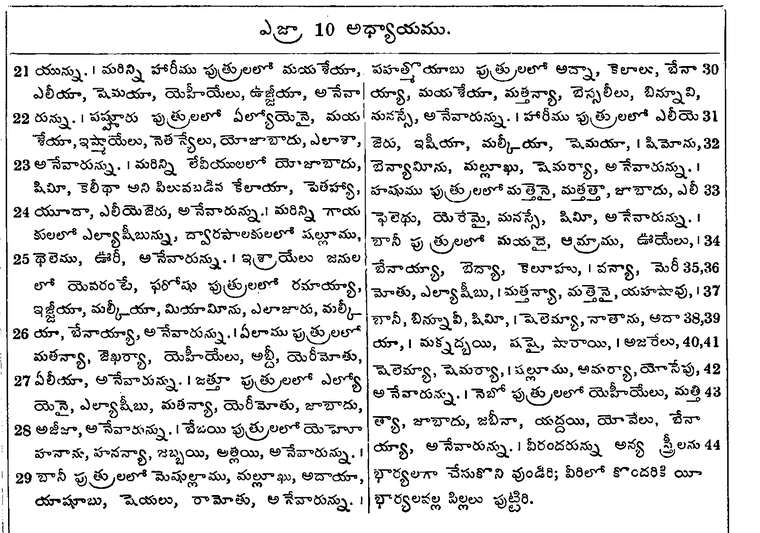 ఎజ్రా 10 అధ్యాయము.
21 యున్ను. । మరిన్ని హారీము పుత్రులలో మయశేయా,
ఎలీయా, షెమయా, యెహీయేలు, ఉజ్జీయా, అనేవా
22 రున్ను. । పష్హూరు పుత్రులలో ఏల్యోయెనై, మయ
శేయా, ఇష్మాయేలు, నెతన్యేలు, యోజాబాదు, ఎలాశా,
23 అనేవారున్ను. । మరిన్ని లేవీయులలో యోజాబాదు,
షిమీ, కెలీథా అని పిలువబడిన కేలాయా, పెతహ్యా,
24 యూదా, ఎలీయెజెరు, అనేవారున్ను. । మరిన్ని గాయ
కులలో ఎల్యాషీబున్ను, ద్వారపాలకులలో షల్లూము,
25 థెలెము, ఊరీ, అనేవారున్ను. । ఇశ్రాయేలు జనుల
లో యెవరంటే, ఫరోషు పుత్రులలో రమాయ్యా,
ఇజ్జీయా, మల్కీయా, మియామీను, ఎలాజారు, మల్కీ
26 యా, బేనాయ్యా, అనేవారున్ను. । ఏలాము పుత్రులలో
మతన్యా, జెఖర్యా, యెహీయేలు, అబ్దీ, యెరీమోతు,
27 ఏలీయా, అనేవారున్ను. । జత్తూ పుత్రులలో ఎల్యో
యెనై, ఎల్యాషీబు, మతన్యా, యెరీమోతు, జాబాదు,
28 అజీజా, అనేవారున్ను. । బేబయి పుత్రులలో యెహూ
హనాను, హనన్యా, జబ్బయి, అత్లియి, అనేవారున్ను. ।
29 బానీ పుత్రులలో మెషుల్లాము, మల్లూఖు, అదాయా,
యాషూబు, షెయలు, రామోతు, అనేవారున్ను. ।
పహత్మొయాబు పుత్రులలో ఆద్నా, కెలాలు, బేనా 30
య్యా, మయశేయా, మత్తన్యా, బెస్సలీలు, బిన్నూవి,
మనస్సే, అనేవారున్ను. । హారీము పుత్రులలో ఎలీయె 31
జెరు, ఇషీయా, మల్కీయా, షెమయా, । షిమోను, 32
బెన్యామీను, మల్లూఖు, షెమర్యా, అనేవారున్ను. ।
హషుము పుత్రులలో మత్తెనై, మత్తత్తా, జాబాదు, ఎలీ 33
ఫెలెథు, యెరేమై, మనస్సే, షిమీ, అనేవారున్ను. ।
బానీ పుత్రులలో మయదై, ఆమ్రాము, ఊయేలు, । 34
బేనాయ్యా, బెద్యా, కెలూహు, । వన్యా, మెరీ 35,36
మోతు, ఎల్యాషీబు, । మత్తన్యా, మత్తెనై, యహషావు, । 37
బానీ, బిన్నూవీ, షిమీ, । షెలెమ్యా, నాతాను, ఆదా 38,39
యా, । మక్నద్బయి, షషై, షారాయి, । అజరేలు, 40,41
షెలెమ్యా, షెమర్యా, । షల్లూము, ఆమర్యా, యోసేపు, 42
అనేవారున్ను. । నెబో పుత్రులలో యెహీయేలు, మత్తి 43
త్యా, జాబాదు, జబీనా, యద్దయి, యోవేలు, బేనా
య్యా, అనేవారున్ను. । వీరందరున్ను అన్య స్త్రీలను 44
భార్యలగా చేసుకొని వుండిరి; వీరిలో కొందరికి యీ
భార్యలవల్ల పిల్లలు పుట్టిరి.